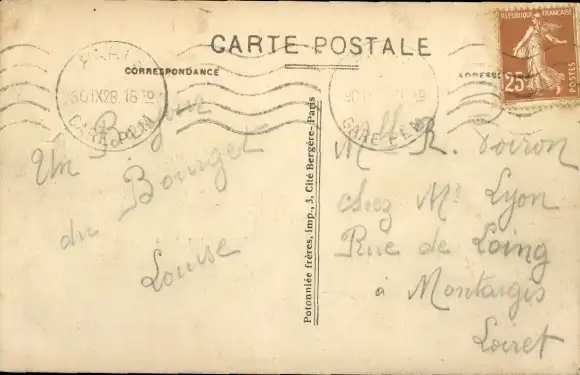 CARTE-POSTALE
CORRESPONDANCE
ADRESSE
RÉPUBLIQUE FRANÇAISE
25
POSTES
PARIS
30 IX 28. 16 30
GARE P.L.M
GARE P.L.M
Un Bonjour
du Bourget
Louise
Potonniée frères, imp., 3, Cité Bergère-Paris
R. Voiron
chez Mr Lyon
Rue de Loing
à Montargis
Loiret